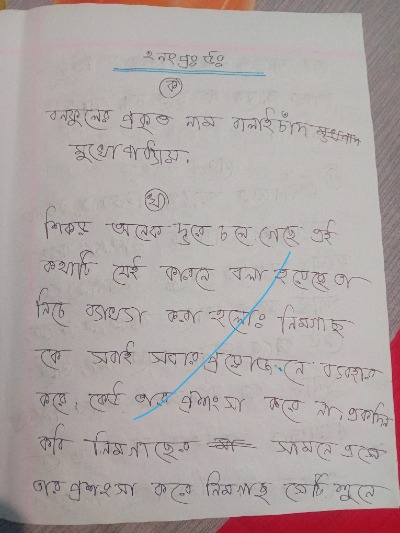 ২নং প্রঃ উঃ
ক
বনফুলের প্রকৃত নাম বলাইচাঁদ
মুখোপাধ্যায়.
খ
শিকড় অনেক দুরে চলে গেছে এই
কথাটি যেই কারনে বলা হয়েছে তা
নিচে ব্যাখ্যা করা হলোঃ নিমগাছ
কে সবাই সবার প্রয়োজনে ব্যবহার
করে, কেউ তার প্রশংসা করে না, একদিন
কবি নিমগাছের সামনে এসে
তার প্রশংসা করে নিমগাছ সেটি শুনে